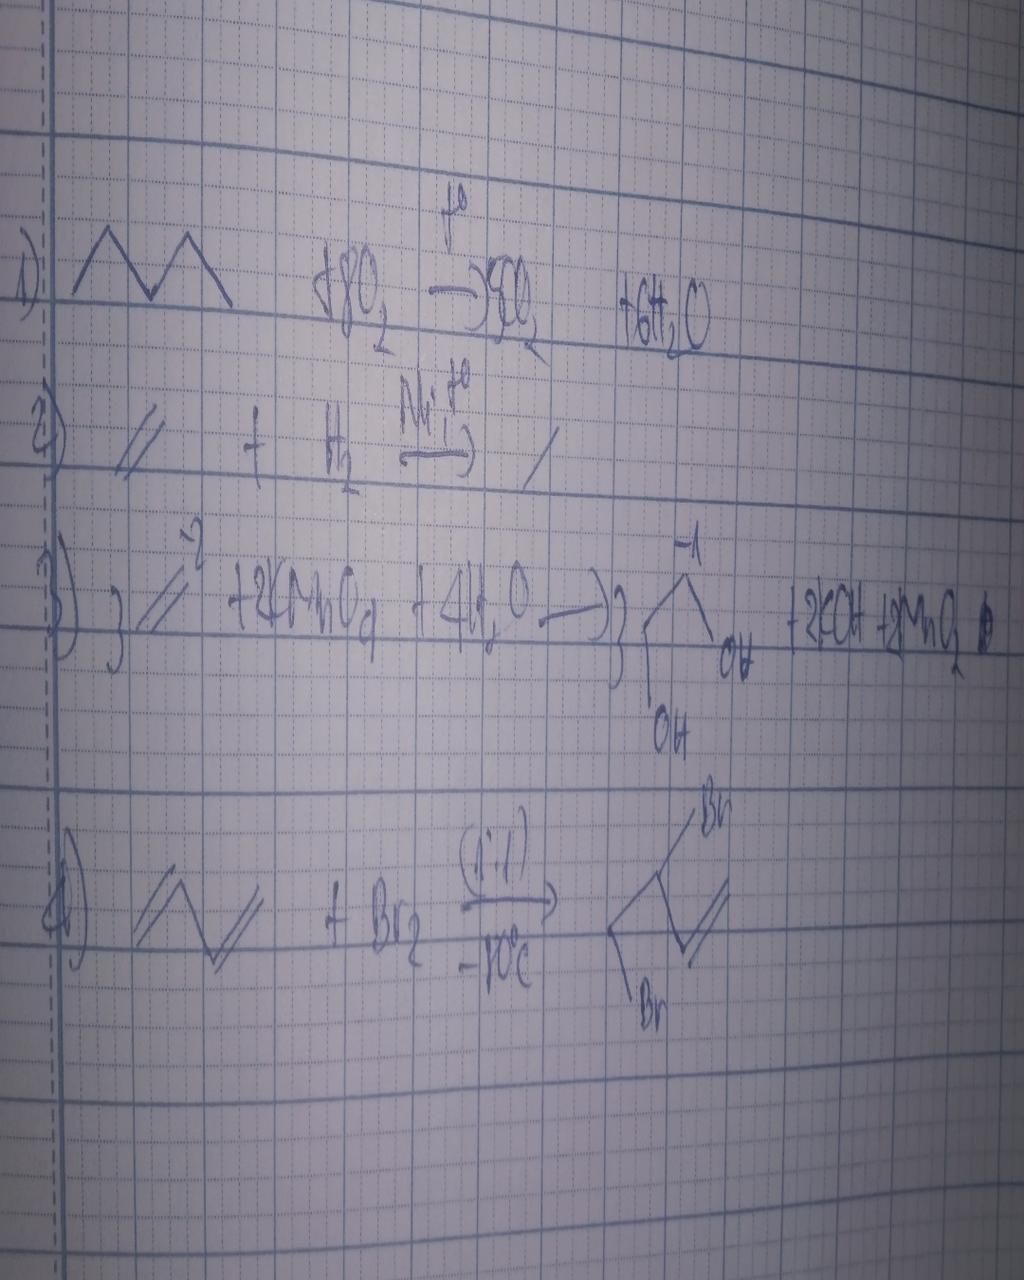 1) + 8O₂ →(t°) 5CO₂ + 6H₂O
2) + H₂ →(Ni, t°)
3) 3 -2 + 2KMnO₄ + 4H₂O → 3 -1 OH OH + 2KOH + 2MnO₂
4) + Br₂ →(1:1) -80°C Br Br